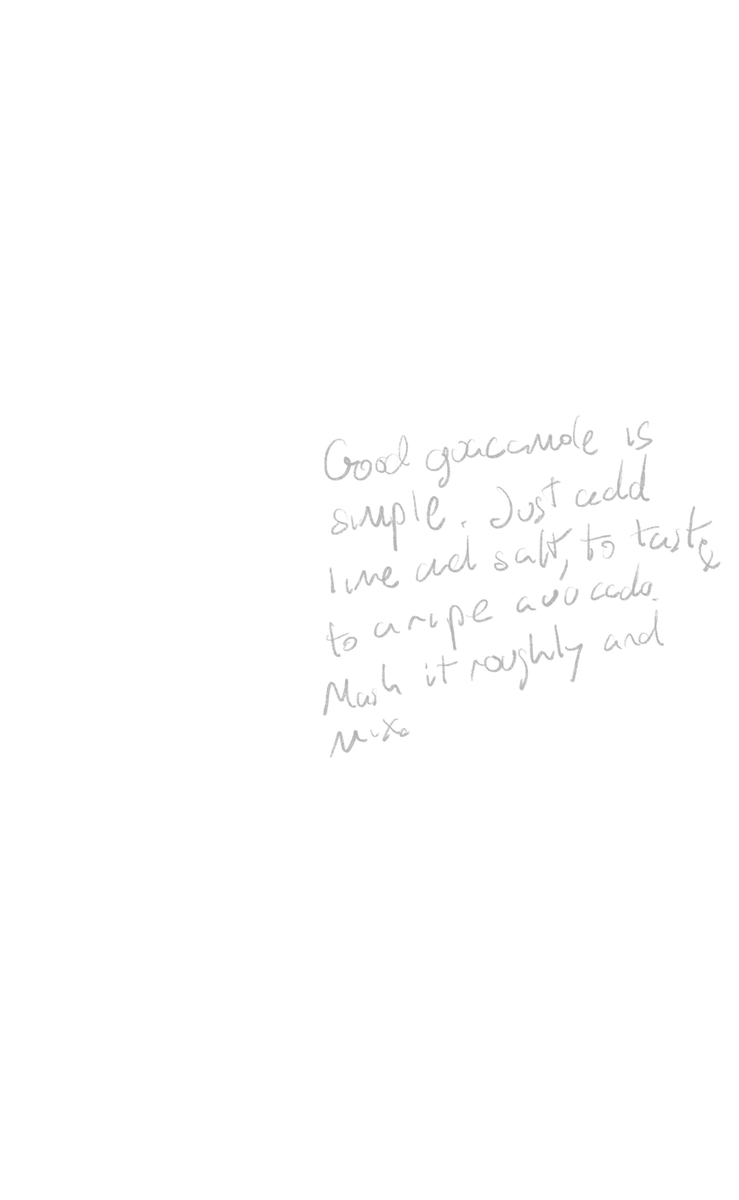 Good guacamole is
simple. Just add
lime and salt, to taste
to a ripe avocado.
Mash it roughly and
mix.